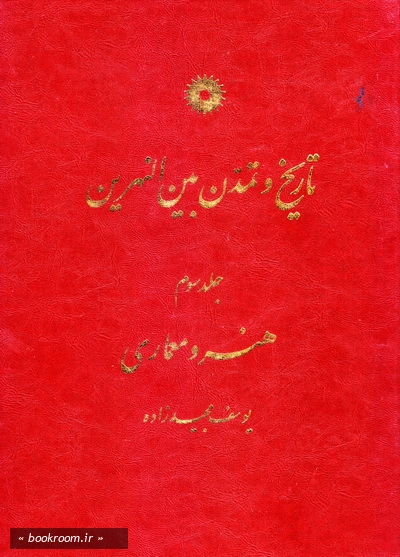 تاریخ و تمدن بین النهرین
جلد سوم
هنر و معماری
یوسف مجیدزاده
« bookroom.ir »